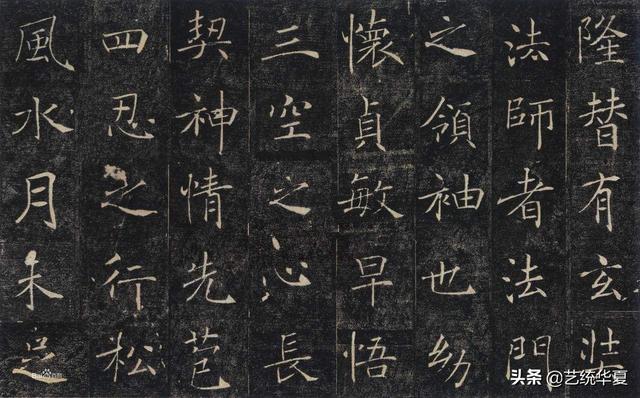 隆替有玄奘
法師者法門
之領袖也幼
懷貞敏早悟
三空之心長
契神情先苞
四忍之行松
風水月未足
头条 @艺统华夏